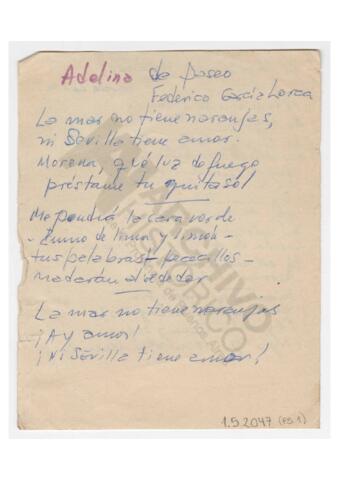 Adelina de Paseo
Federico García Lorca
La mar no tiene naranjas,
ni Sevilla tiene amor.
Morena, qué luz de fuego
préstame tu quitasol
Me pondrá la cara verde
- Zumo de lima y limón -
tus palabras - pececillos -
nadarán alrededor
La mar no tiene naranjas
¡Ay amor!
¡Ni Sevilla tiene amor!
ARCHIVO
HISTÓRICO
1.5.2047 (FS.1)